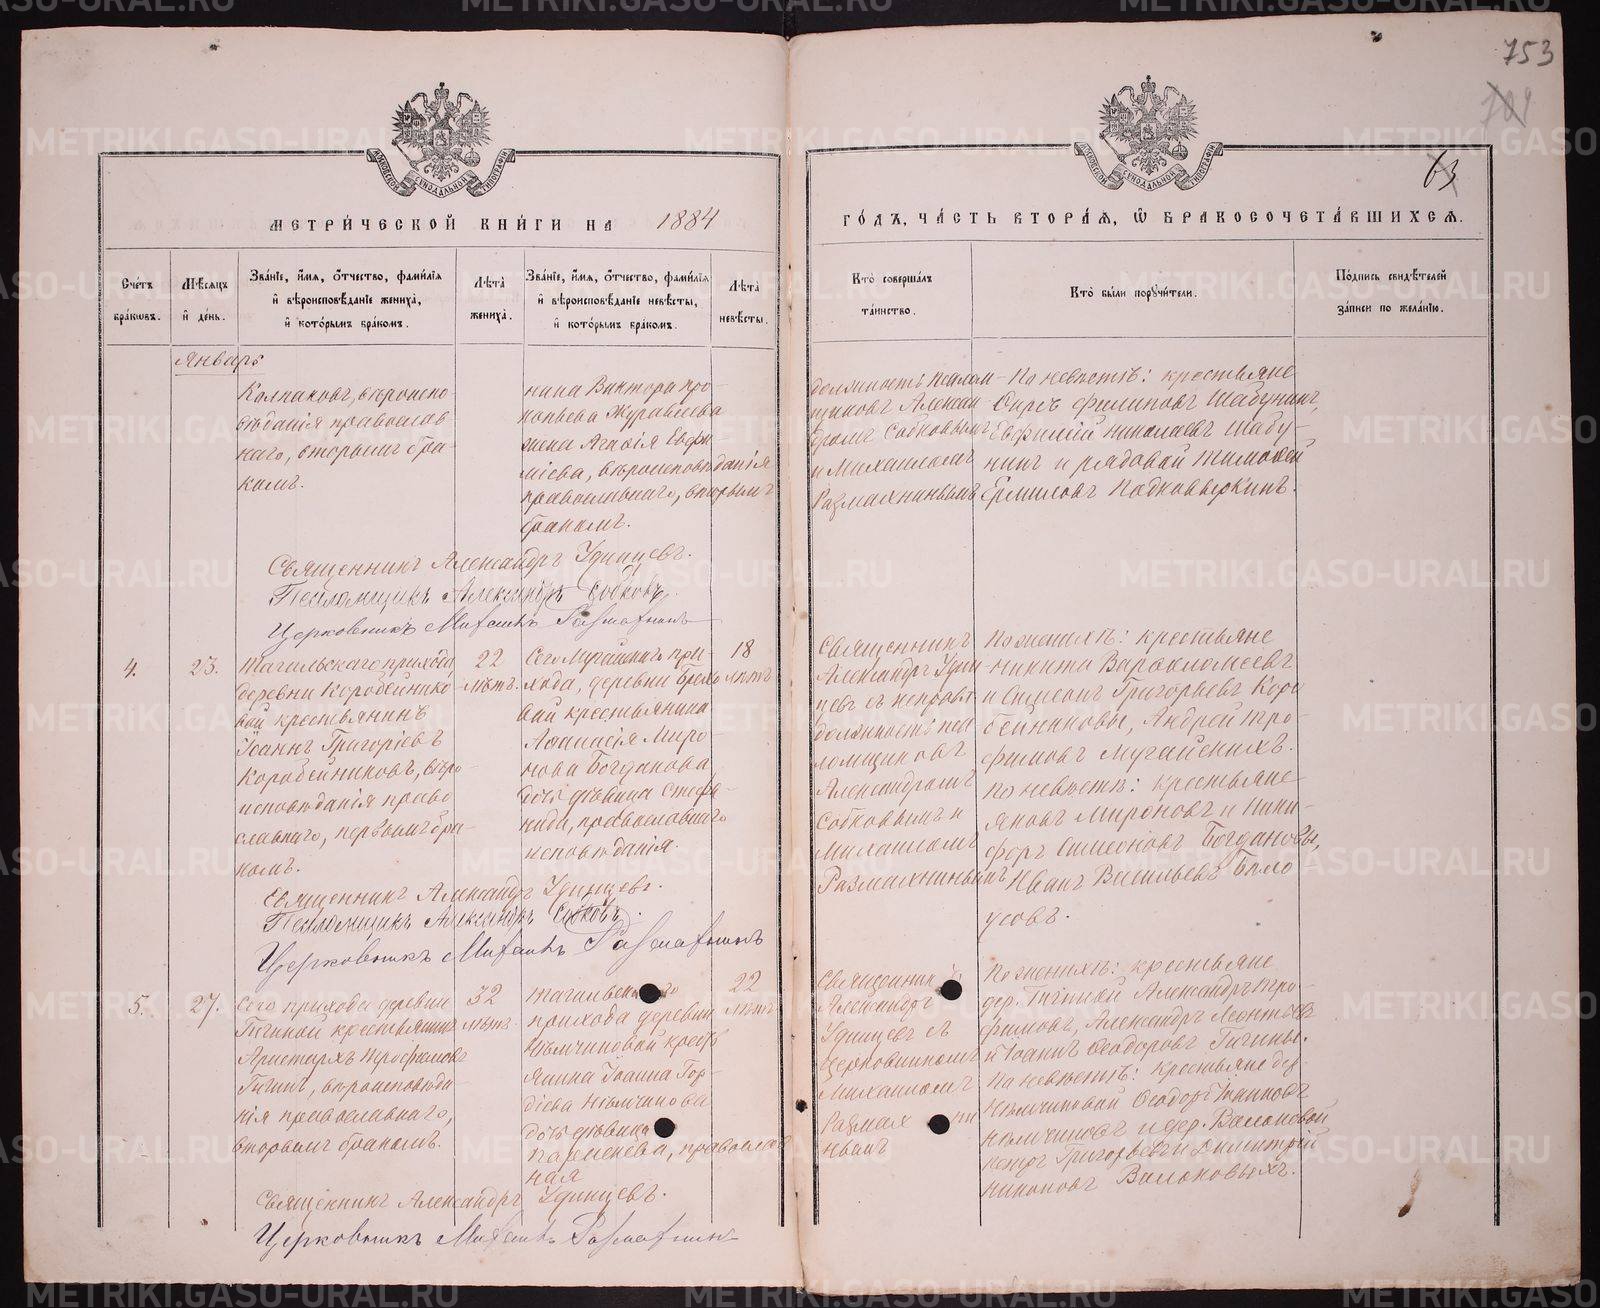 753
63
МЕТРИЧЕСКОЙ КНИГИ НА 1884
ГОДЪ, ЧАСТЬ ВТОРАЯ, Ѡ БРАКОСОЧЕТАВШИХСЯ.
Счетъ браковъ.
Мѣсяцъ и день.
Званіе, имя, отчество, фамилія
и вѣроисповѣданіе жениха,
и которымъ бракомъ.
Лѣта
жениха.
Званіе, имя, отчество, фамилія
и вѣроисповѣданіе невѣсты,
и которымъ бракомъ.
Лѣта
невѣсты.
Кто совершалъ
таинство.
Кто были поручители.
Подпись свидѣтелей
записи по желанію.
Январь
Колпаковъ, вѣроиспо-
вѣданія православ
наго, вторымъ бра-
комъ.
нина Виктора Про-
копьева Журавлева
жена Агнія Евфи-
міева, вѣроисповѣданія
православнаго, вторымъ
бракомъ.
должность псалом-
щиковъ Алексан
дромъ Собковымъ
и Михаиломъ
Размахнинымъ
По невѣстѣ: крестьяне
Филиповъ Шабунинъ,
Евфимій Николаевъ Шабу-
нинъ и рядовой Тимоѳей
Ермиловъ Подковыркинъ.
Священникъ Александръ Удинцевъ.
Псаломщикъ Александръ Собковъ.
Церковникъ Михаилъ Размахнинъ
4.
23.
Тагильскаго прихода
деревни Коробейнико-
вой крестьянинъ
Іоаннъ Григоріевъ
Коробейниковъ, вѣро
исповѣданія право
славнаго, первымъ бра-
комъ.
22
лѣтъ.
Сего Мугайскаго при-
хода, деревни Брехо
вой крестьянина
Аѳанасія Миро-
нова Богданова
дочь дѣвица Стефа-
нида, православнаго
исповѣданія.
18
лѣтъ
Священникъ
Александръ Удин
цевъ съ
должность пса
ломщиковъ
Александромъ
Собковымъ и
Михаиломъ
Размахнинымъ
По женихѣ: крестьяне
Никита Варѳоломеевъ
и Симеонъ Григорьевъ Коро
бейниковы, Андрей Тро-
фимовъ Мугайскихъ.
По невѣстѣ: крестьяне
Яковъ Мироновъ и Ники-
форъ Симеоновъ Богдановы,
Иванъ Васильевъ Бѣло
усовъ.
Священникъ Александръ Удинцевъ.
Псаломщикъ Александръ Собковъ.
Церковникъ Михаилъ Размахнинъ
5.
27.
Сего прихода деревни
Гичиной крестьянинъ
Аристархъ Трофимовъ
Гичинъ, вѣроисповѣда
нія православнаго,
вторымъ бракомъ.
32
лѣтъ.
Тагильскаго
прихода деревни
Нѣмчиновой кресть
янина Іоанна Гор-
діева Нѣмчинова
дочь дѣвица
православ
ная
22
лѣтъ
Священникъ
Александръ
Удинцевъ съ
церковникомъ
Михаиломъ
Размахни
нымъ
По женихѣ: крестьяне
дер. Гичиной Александръ Тро-
фимовъ, Александръ Леонтьевъ
и Іоаннъ Ѳеодоровъ Гичины.
По невѣстѣ: крестьяне дер.
Нѣмчиновой Ѳеодоръ Іоанновъ
Нѣмчиновъ и дер.
Петръ Григорьевъ и Димитрій
Никоновъ
Священникъ Александръ Удинцевъ.
Церковникъ Михаилъ Размахнинъ